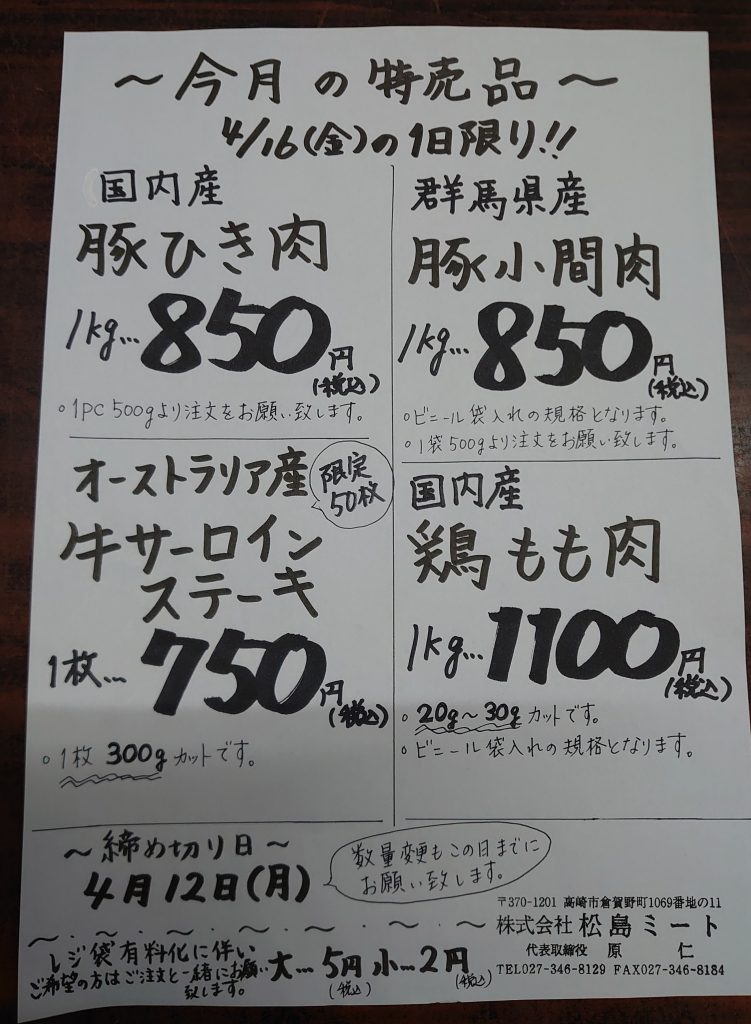 ～今月の特売品～
4/16(金)の1日限り!!
国内産
豚ひき肉
1kg…850円
(税込)
○1PC 500gより注文をお願い致します。
群馬県産
豚小間肉
1kg…850円
(税込)
○ビニール袋入れの規格となります。
○1袋500gより注文をお願い致します。
オーストラリア産
限定
50枚
牛サーロイン
ステーキ
1枚…750円
(税込)
○1枚 300gカットです。
国内産
鶏もも肉
1kg…1100円
(税込)
○20g～30gカットです。
○ビニール袋入れの規格となります。
～締め切り日～
4月12日(月)
数量変更もこの日までに
お願い致します。
レジ袋有料化に伴い
ご希望の方はご注文と一緒にお願い
致します。
大…5円 小…2円
(税込) (税込)
〒370-1201 高崎市倉賀野町1069番地の11
株式会社 松島ミート
代表取締役 原 仁
TEL027-346-8129 FAX027-346-8184